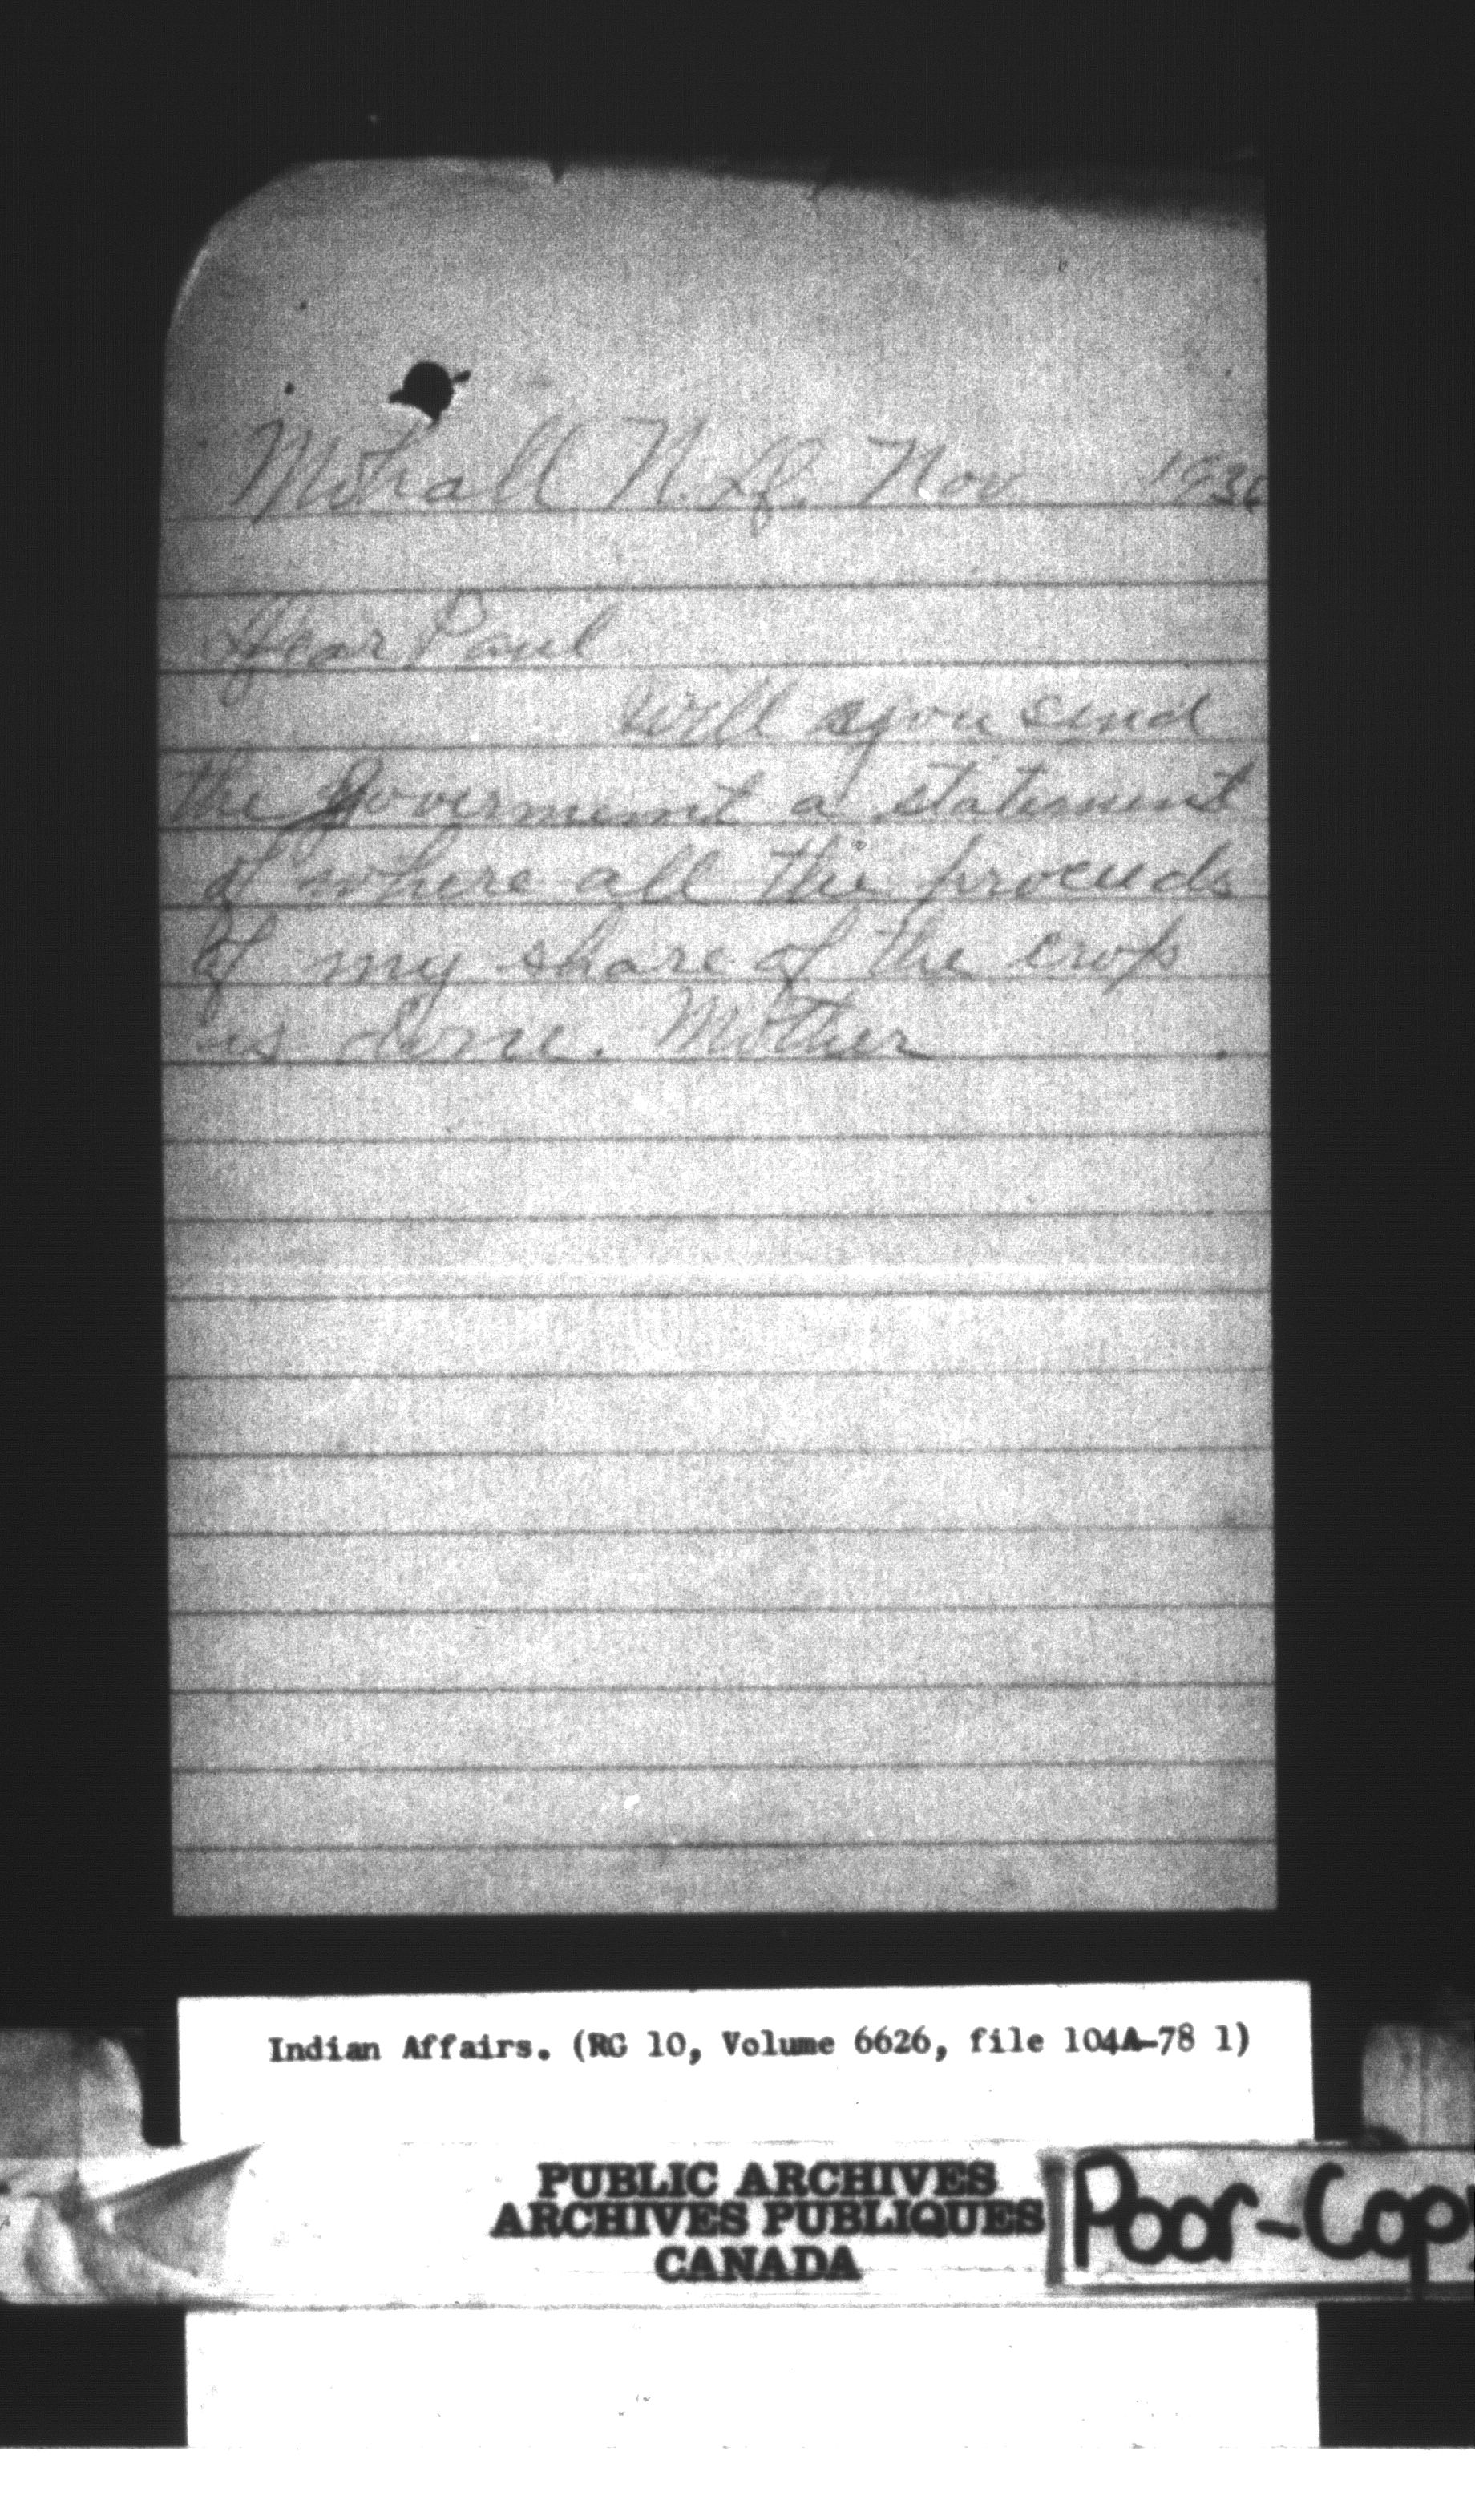 Mohall N.D. Nov 1936
Dear Paul
Will you send
the Goverment a statement
of where all the proceeds
of my share of the crop
is done. Mother
Indian Affairs. (RG 10, Volume 6626, file 104A-78 1)
PUBLIC ARCHIVES
ARCHIVES PUBLIQUES
CANADA
Poor-Copy